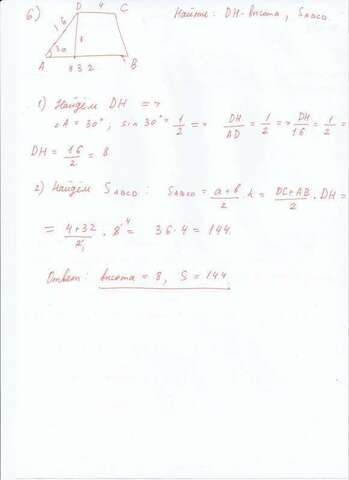 6) D 4 C Найти: DH-высота, SABCD.
16 8
30
A 8 32 B
1) Найдём DH =>
∠A = 30°; sin 30° = 1/2 => DH/AD = 1/2 => DH/16 = 1/2 =>
DH = 16/2 = 8
2) Найдём SABCD: SABCD = a+b/2 · h = DC+AB/2 · DH =
= 4+32/2 · 8 4 = 36·4 = 144
Ответ: высота = 8, S = 144.